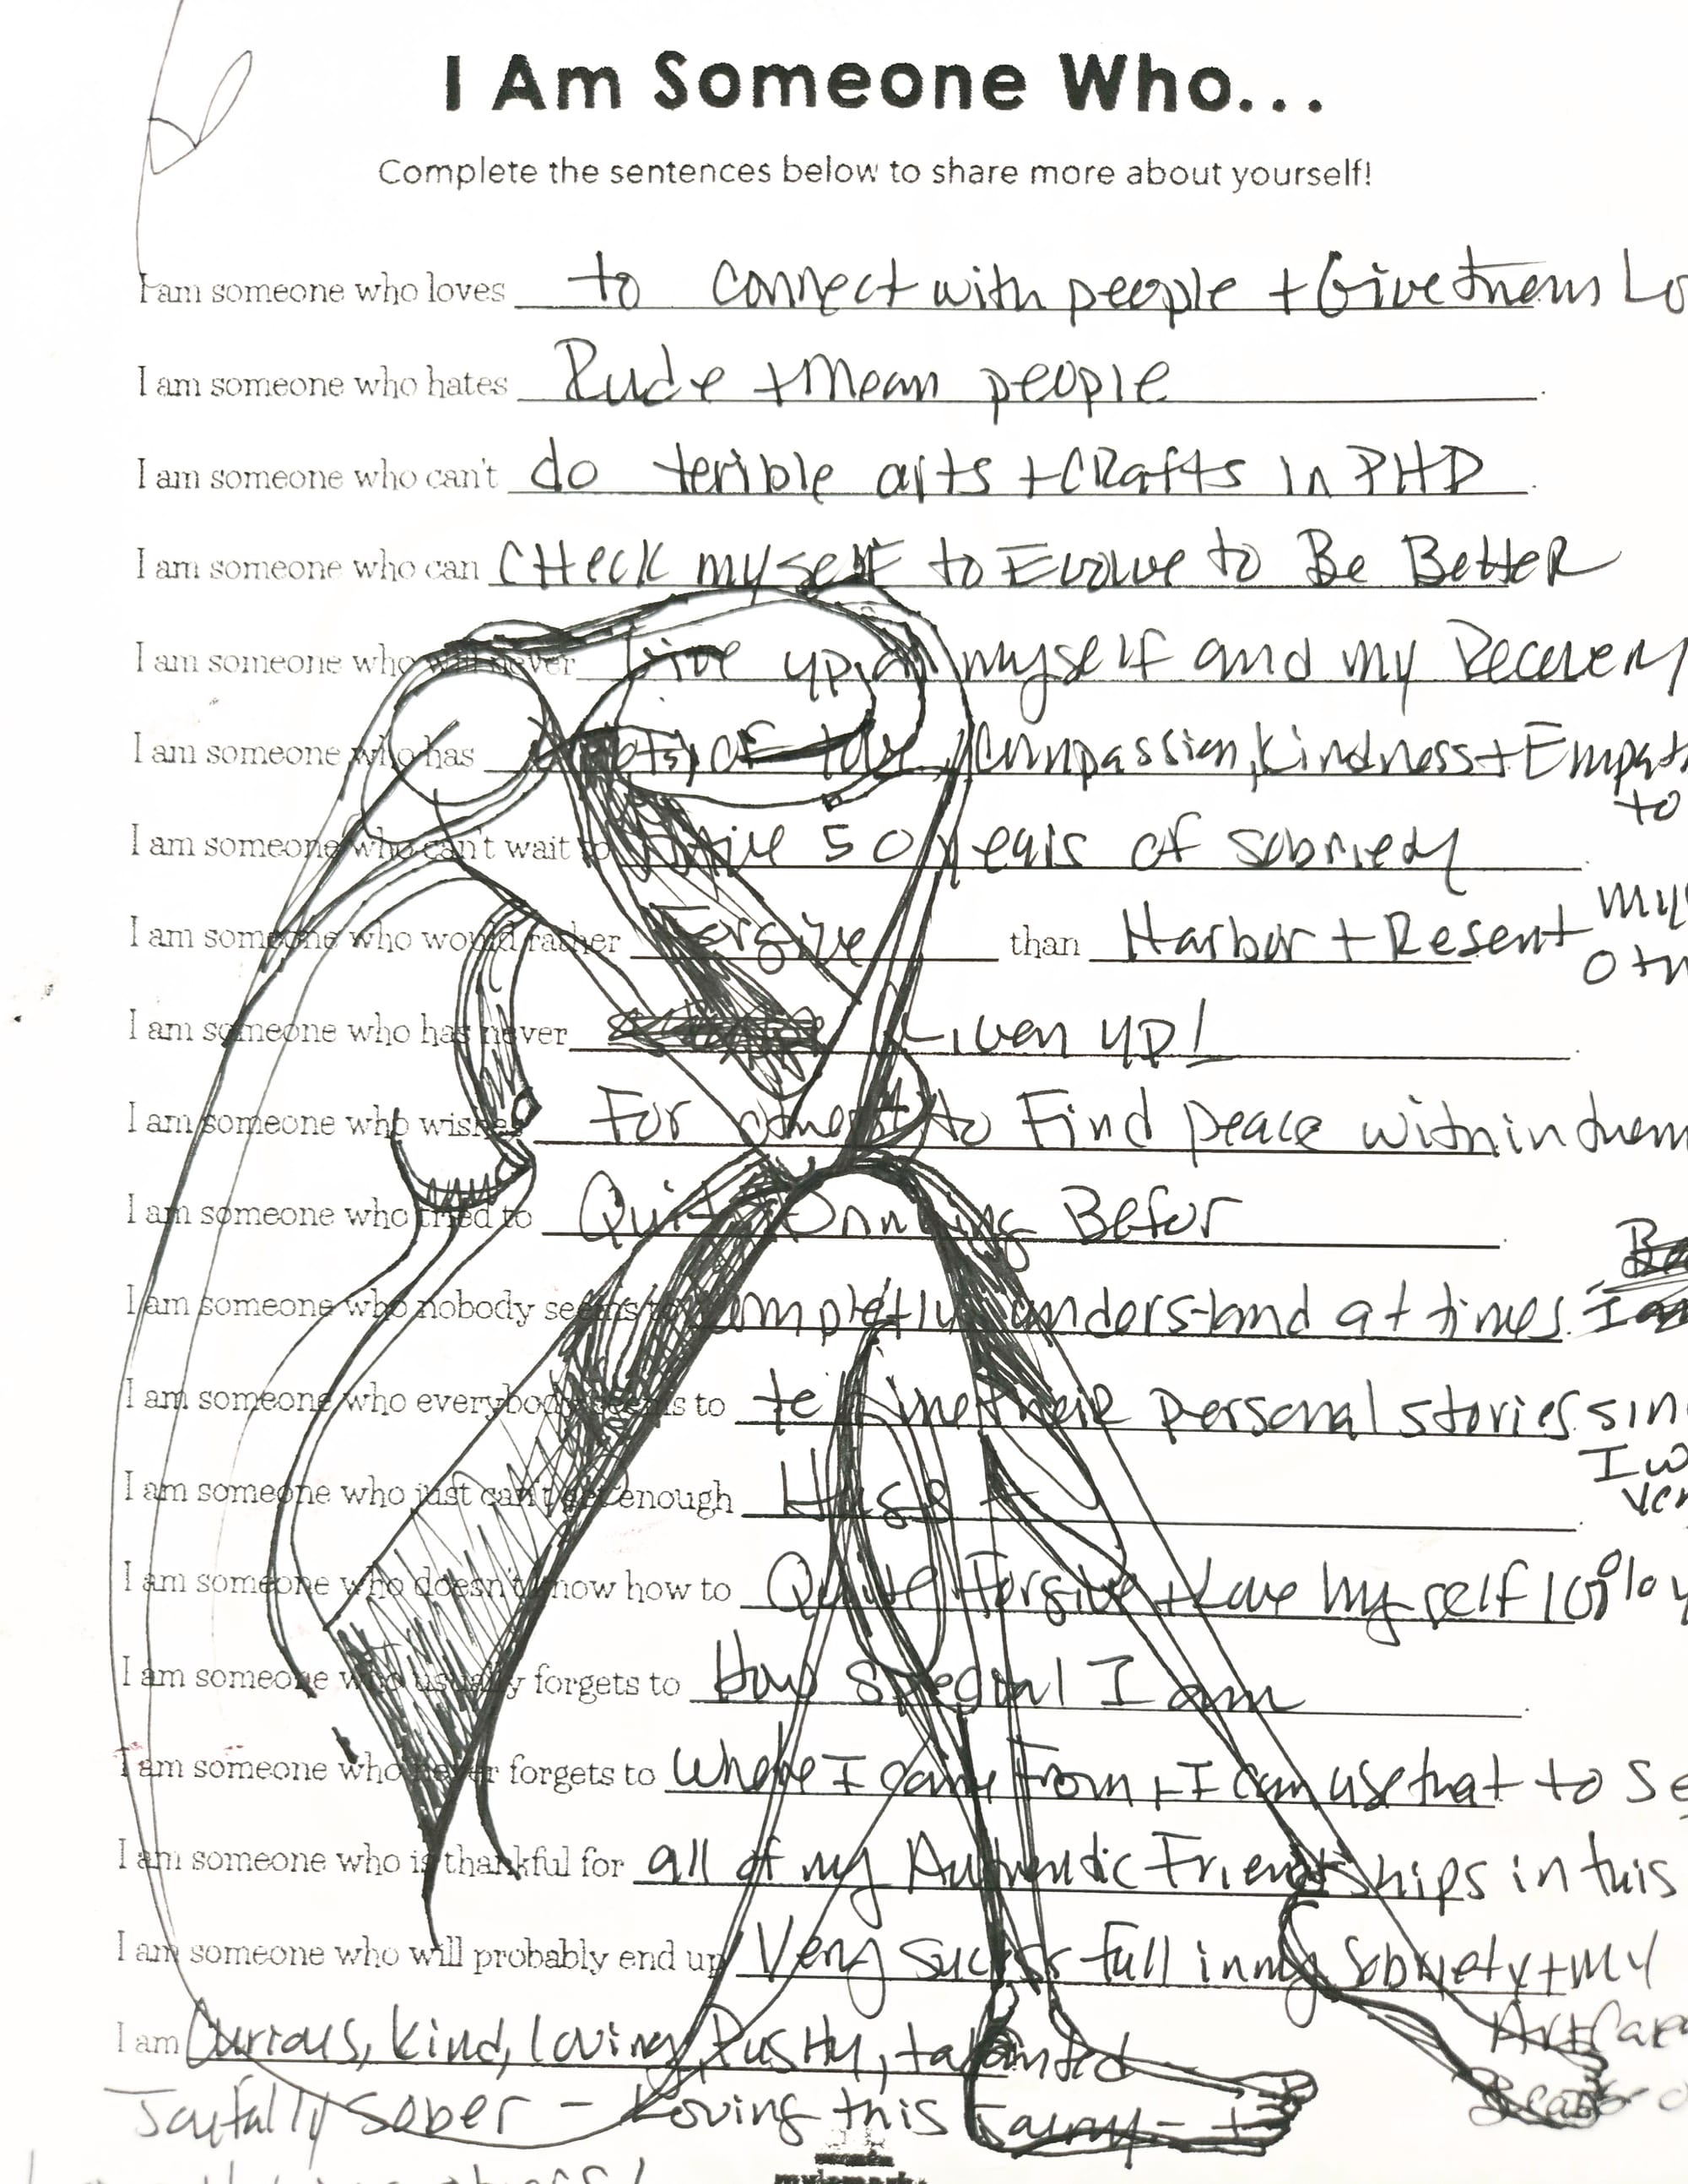 I Am Someone Who...
Complete the sentences below to share more about yourself!
I am someone who loves to connect with people + Give them Lo
I am someone who hates Rude + Mean people
I am someone who can't do terible arts + CRafts in PHP
I am someone who can CHeck myself to Evolve to Be BetteR
I am someone who will never Give up on myself and my Recovery
I am someone who has lots of love, Compassion, kindness + Empath
to
I am someone who can't wait to 50 years of
I am someone who would rather Forgive than Harbor + Resent
I am someone who has never Given up!
I am someone who wishes For others to Find peace within them
I am someone who tried to Quit Drinking Befor
I am someone who nobody seems to completly understand at times
I am someone who everybody seems to tell me their personal stories sin
I am someone who just can't get enough Hugs
I am someone who doesn't know how to Quite Forgive + Love myself 100%
I am someone who usually forgets to how special I am
I am someone who never forgets to where I came From + I can use that to se
I am someone who is thankful for all of my Authentic Friendships in this
I am someone who will probably end up Very in my Sobriety + my
I am Curious, kind, loving, talented
Joyfully Sober - Loving this